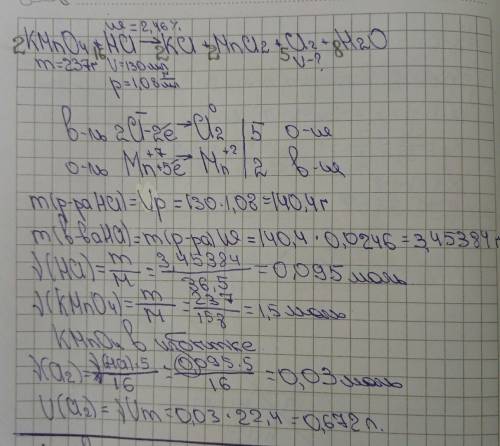 ω=2,46%
2KMnO4+16HCl→2KCl+2MnCl2+5Cl2+8H2O
m=237г V=130мл V-?
ρ=1,08г/мл
в-ль 2Cl⁻-2e→Cl2⁰ | 5 о-ие
о-ль Mn⁺⁷+5e→Mn⁺² | 2 в-ие
m(р-ра HCl)=Vρ=130·1,08=140,4г
m(в-ва HCl)=m(р-ра)ω=140,4·0,0246=3,45384г
ν(HCl)=m/M=3,45384/36,5=0,095моль
ν(KMnO4)=m/M=237/158=1,5моль
KMnO4 в избытке
ν(Cl2)=ν(HCl)·5/16=0,095·5/16=0,03моль
V(Cl2)=νVm=0,03·22,4=0,672л.